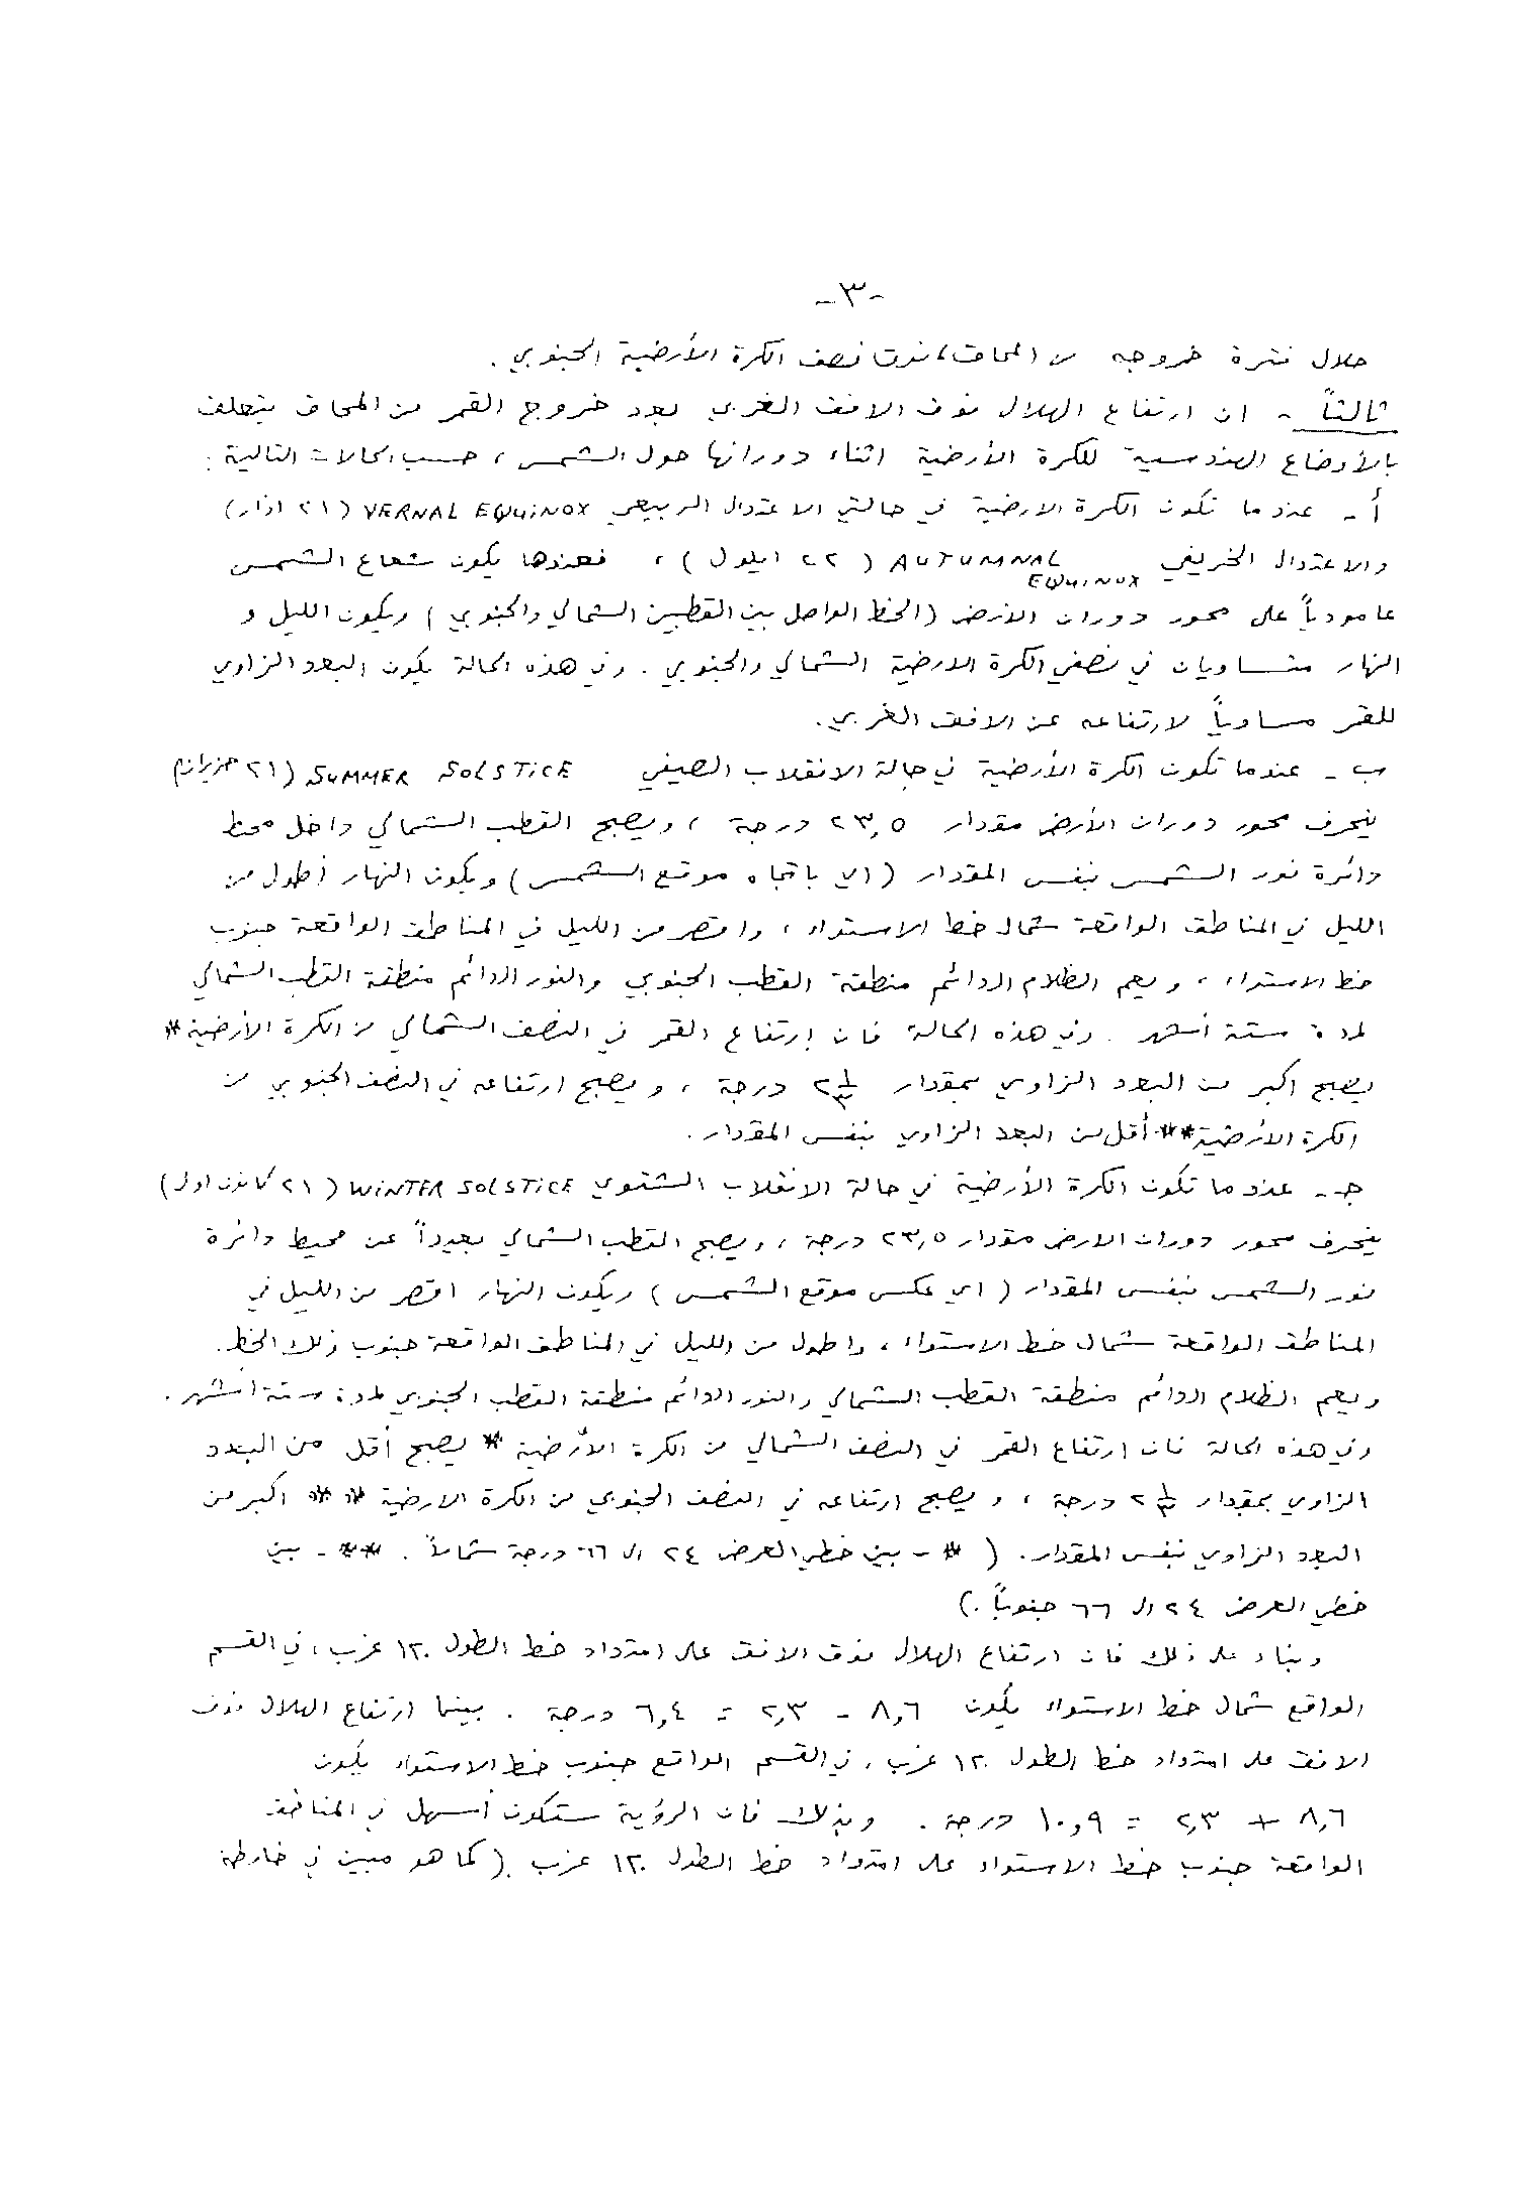 -٣-
خلال فترة خروجه من المحاق، فوق نصف الكرة الأرضية الجنوبي.
ثالثاً - ان ارتفاع الهلال فوق الافق الغربي بعد خروج القمر من المحاق يتعلق
بالأوضاع الهندسية للكرة الأرضية اثناء دورانها حول الشمس، حسب الحالات التالية:
أ - عندما تكون الكرة الارضية في حالتي الاعتدال الربيعي VERNAL EQUINOX (٢١ اذار)
والاعتدال الخريفي AUTUMNAL EQUINOX (٢٢ ايلول)، فعندها يكون شعاع الشمس
عامودياً على محور دوران الارض (الخط الواصل بين القطبين الشمالي والجنوبي) ويكون الليل و
النهار متساويان في نصفي الكرة الارضية الشمالي والجنوبي. وفي هذه الحالة يكون البعد الزاوي
للقمر مساوياً لارتفاعه عن الافق الغربي.
ب - عندما تكون الكرة الأرضية في حالة الانقلاب الصيفي SUMMER SOLSTICE (٢١ حزيران)
ينحرف محور دوران الأرض مقدار ٢٣,٥ درجة، ويصبح القطب الشمالي داخل محيط
دائرة نور الشمس بنفس المقدار (اي باتجاه موقع الشمس) ويكون النهار أطول من
الليل في المناطق الواقعة شمال خط الاستواء، واقصر من الليل في المناطق الواقعة جنوب
خط الاستواء، ويعم الظلام الدائم منطقة القطب الجنوبي والنور الدائم منطقة القطب الشمالي
لمدة ستة أشهر. وفي هذه الحالة فان إرتفاع القمر في النصف الشمالي من الكرة الارضية*
يصبح اكبر من البعد الزاوي بمقدار ٢ ١/٣ درجة، ويصبح ارتفاعه في النصف الجنوبي من
الكرة الارضية** أقل من البعد الزاوي بنفس المقدار.
جـ - عندما تكون الكرة الأرضية في حالة الانقلاب الشتوي WINTER SOLSTICE (٢١ كانون اول)
ينحرف محور دوران الارض مقدار ٢٣,٥ درجة، ويصبح القطب الشمالي بعيداً عن محيط دائرة
نور الشمس بنفس المقدار (اي عكس موقع الشمس) ويكون النهار اقصر من الليل في
المناطق الواقعة شمال خط الاستواء، واطول من الليل في المناطق الواقعة جنوب ذلك الخط.
ويعم الظلام الدائم منطقة القطب الشمالي والنور الدائم منطقة القطب الجنوبي لمدة ستة أشهر.
وفي هذه الحالة فان ارتفاع القمر في النصف الشمالي من الكرة الأرضية* يصبح أقل من البعد
الزاوي بمقدار ٢ ١/٣ درجة، ويصبح ارتفاعه في النصف الجنوبي من الكرة الارضية ** اكبر من
البعد الزاوي بنفس المقدار. (* - بين خطي العرض ٢٤ الى ٦٦ درجة شمالاً. ** - بين
خطي العرض ٢٤ الى ٦٦ جنوباً.)
وبناء على ذلك فان ارتفاع الهلال فوق الافق على امتداد خط الطول ١٢٠ غرب، في القسم
الواقع شمال خط الاستواء يكون ٨,٦ - ٢,٣ = ٦,٤ درجة. بينما ارتفاع الهلال فوق
الافق على امتداد خط الطول ١٢٠ غرب، في القسم الواقع جنوب خط الاستواء يكون
٨,٦ + ٢,٣ = ١٠,٩ درجة. وبذلك فان الرؤية ستكون أسهل في المناطق
الواقعة جنوب خط الاستواء على امتداد خط الطول ١٢٠ غرب. (كما هو مبين في خارطة